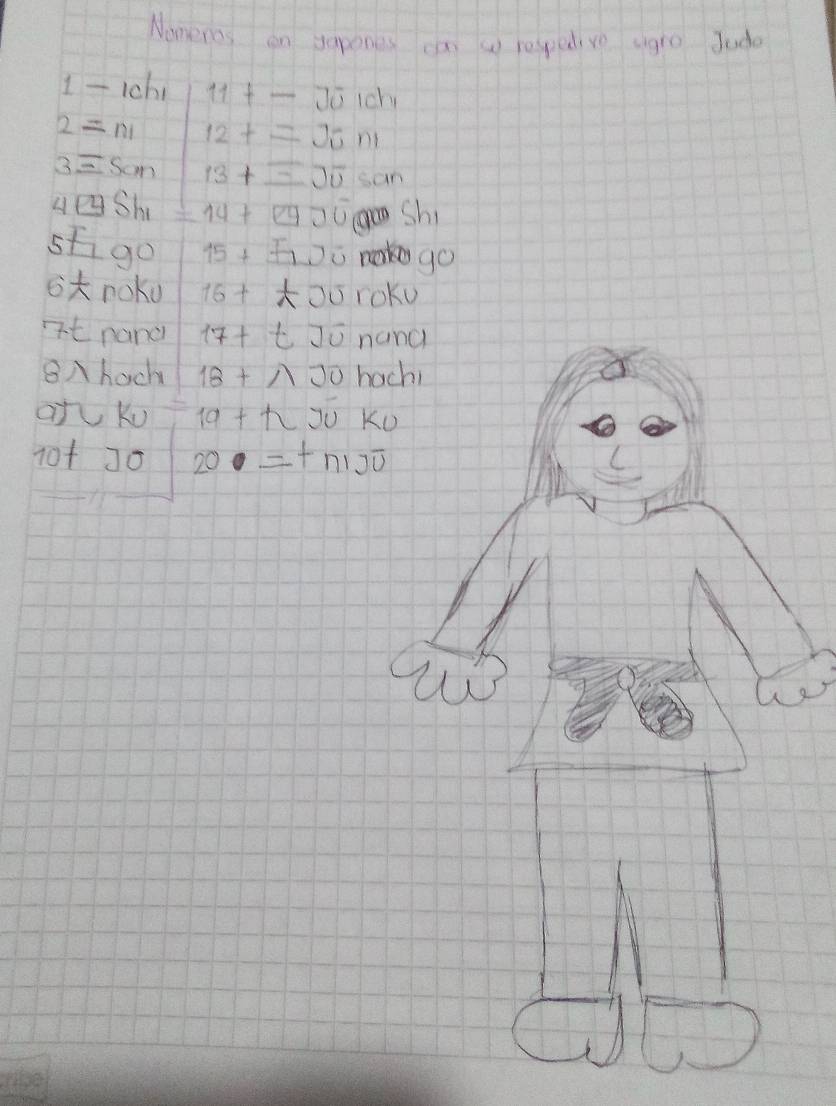 Numeros en japones con su respectivo signo Judo
1 一 ichi
2 二 ni
3 三 San
4 四 Shi
5 五 go
6 六 roku
7 七 nana
8 八 hachi
9 九 Ku
10 十 Jū
11 十 一 Jū ichi
12 十 二 Jū ni
13 十 三 Jū san
14 十 四 Jū Shi
15 十 五 Jū go
16 十 六 Jū roku
17 十 七 Jū nana
18 十 八 Jū hachi
19 十 九 Jū Ku
20 二十 ni Jū